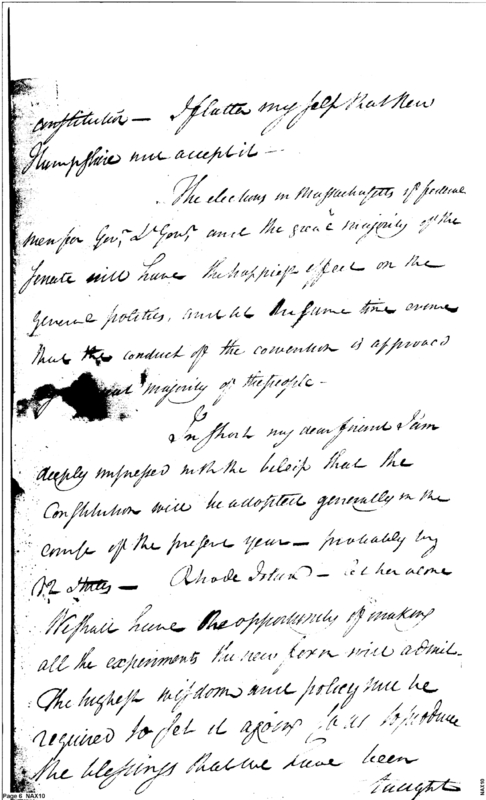 constitution — I flatter myself that New
Hampshire will accept it —
The elections in Massachusetts of federal
men for Govr, Lt Govr, and the great majority of the
senate will have the happiest effect on the
general politics, and at the same time evince
that the conduct of the convention is approved
majority of the people —
In short my dear friend I am
deeply impressed with the belief that the
Constitution will be adopted generally in the
course of the present year — probably by
12 States — Rhode Island — let her alone
We shall have the opportunity of making
all the experiments the new form will admit.
The highest wisdom and policy will be
required to set it agoing so as to produce
the blessings that we have been
taught
Page 6 NAX10
NAX10